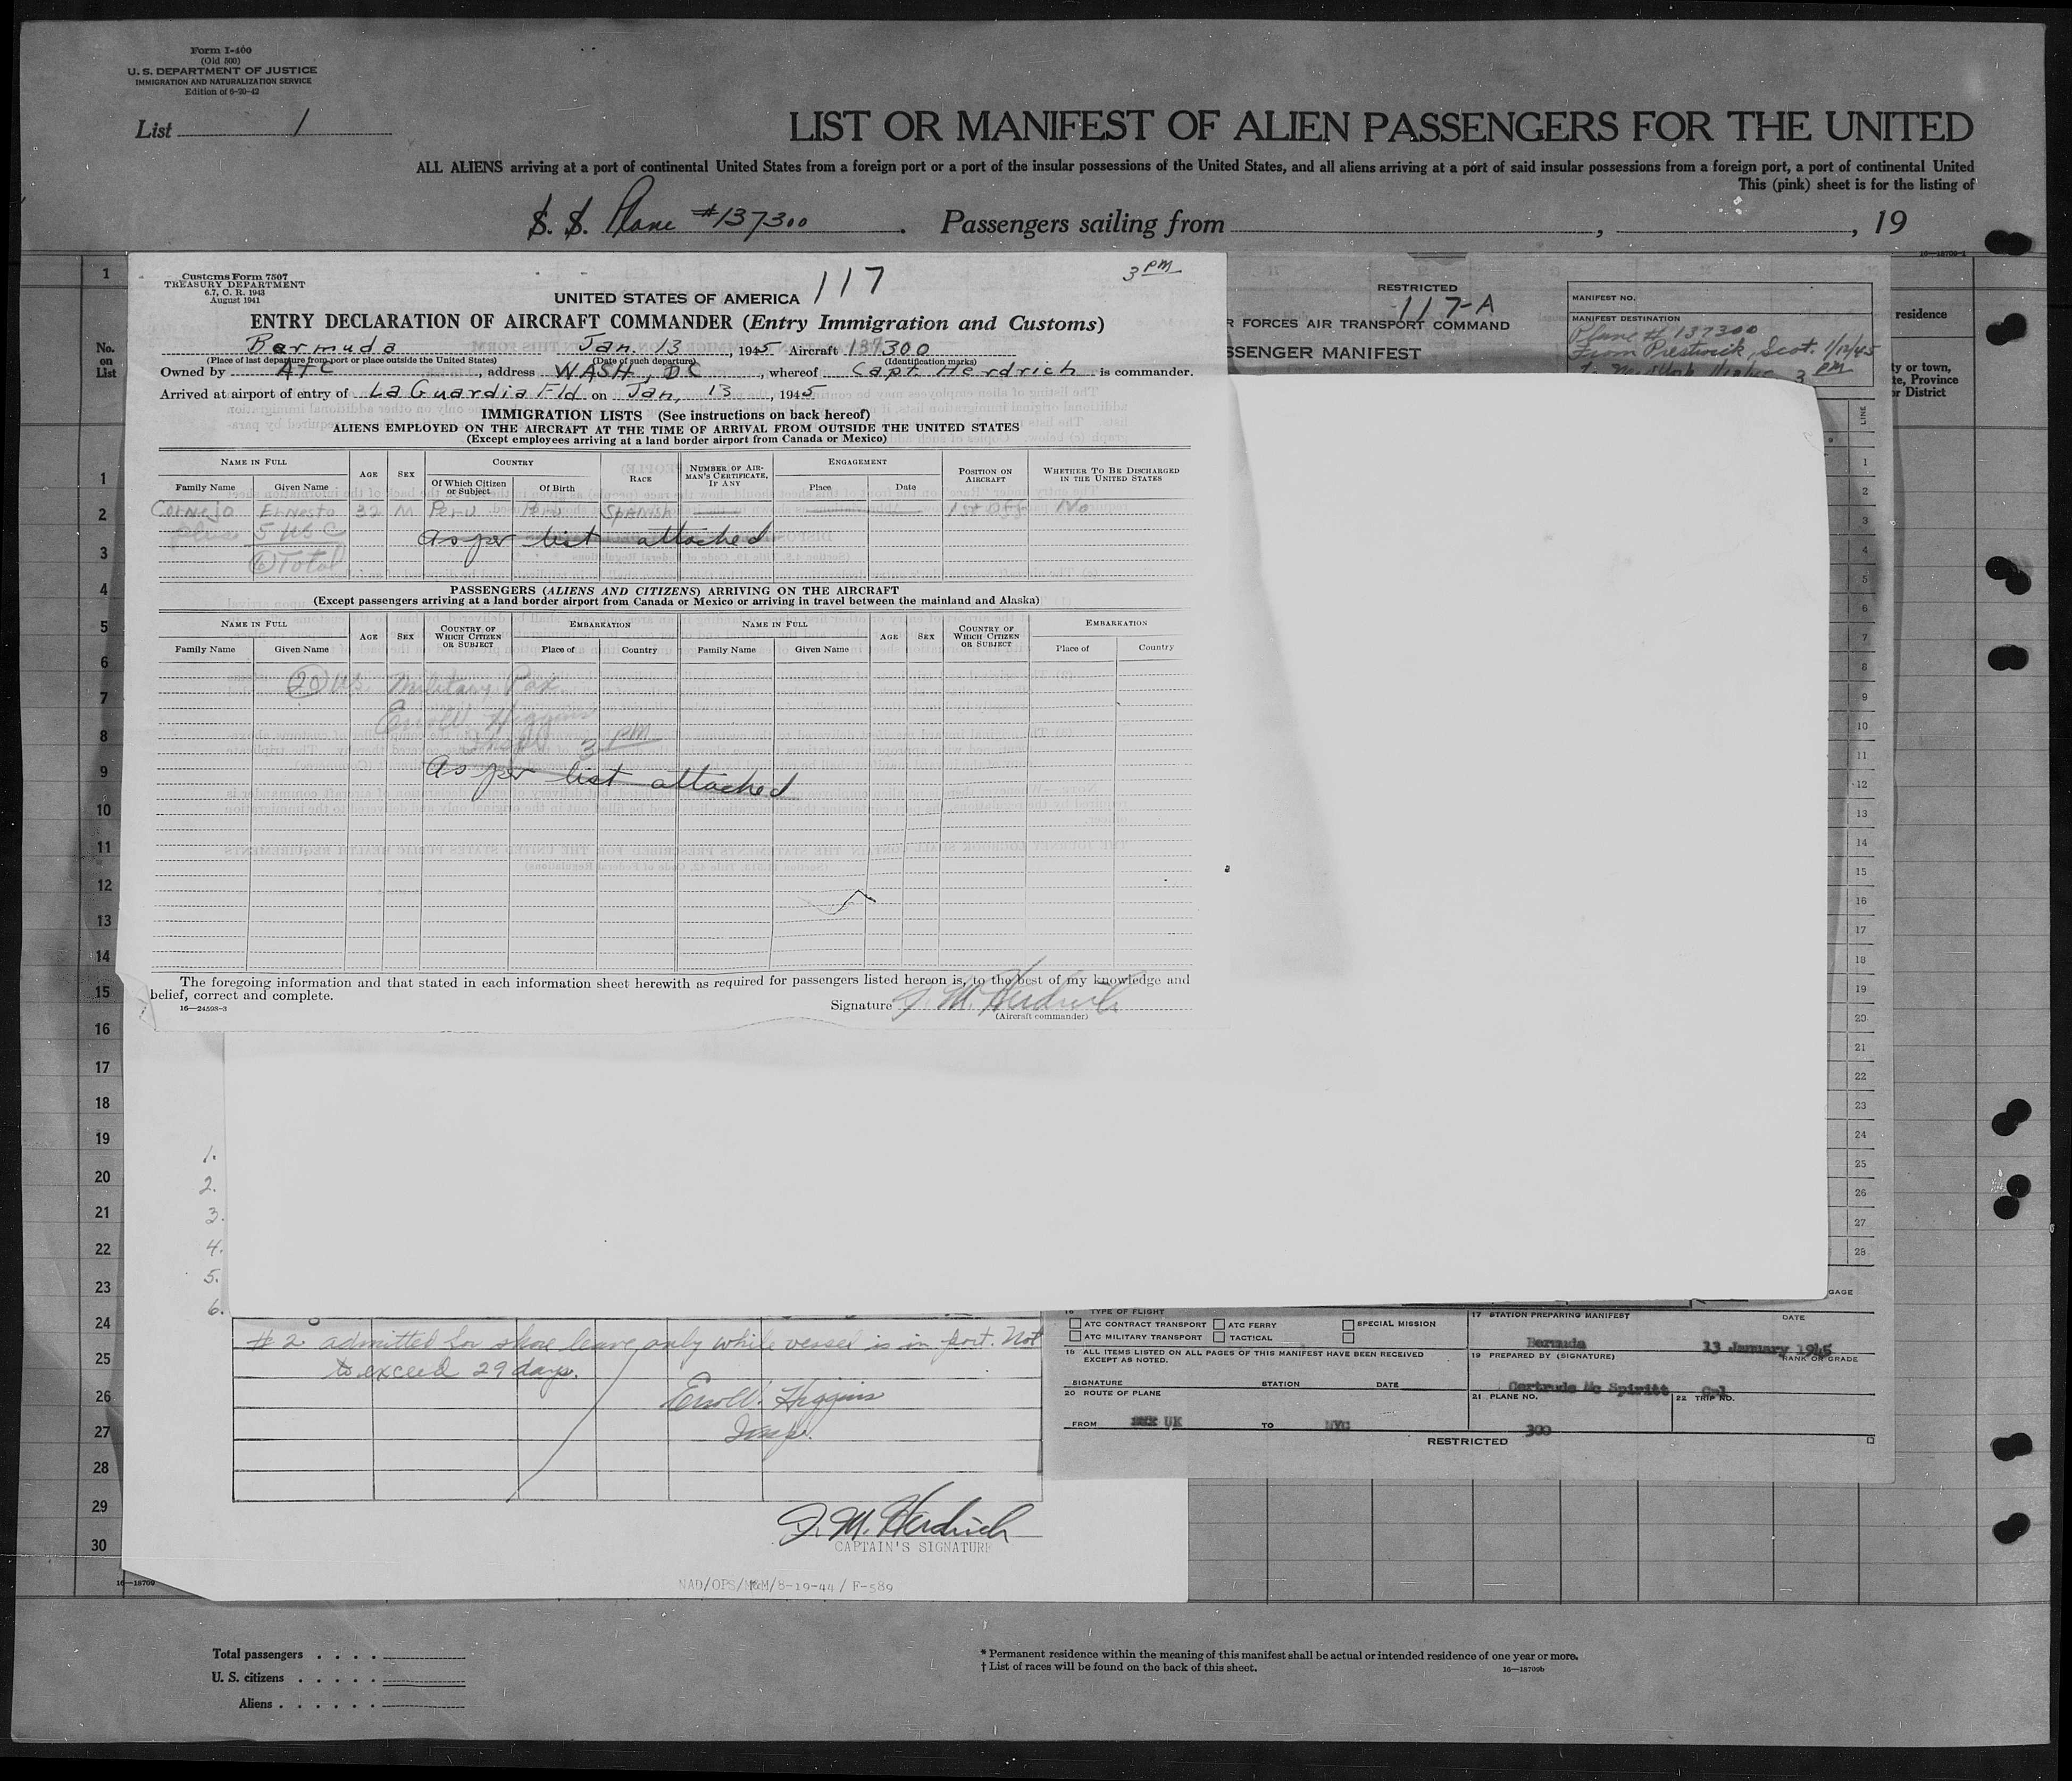 Form I-400
(Old 500)
U. S. DEPARTMENT OF JUSTICE
IMMIGRATION AND NATURALIZATION SERVICE
Edition of 6-20-42
List 1
LIST OR MANIFEST OF ALIEN PASSENGERS FOR THE UNITED
ALL ALIENS arriving at a port of continental United States from a foreign port or a port of the insular possessions of the United States, and all aliens arriving at a port of said insular possessions from a foreign port, a port of continental United
This (pink) sheet is for the listing of
S. S. Plane #137300. Passengers sailing from , , 19
16—18709-1
No. on List
residence
ty or town,
te, Province
or District
Customs Form 7507
TREASURY DEPARTMENT
6.7, C. R. 1943
August 1941
117
3 PM
UNITED STATES OF AMERICA
ENTRY DECLARATION OF AIRCRAFT COMMANDER (Entry Immigration and Customs)
Bermuda Jan. 13, 1945 Aircraft 137300
(Place of last departure from port or place outside the United States) (Date of such departure) (Identification marks)
Owned by ATC, address WASH, DC, whereof Capt. Herdrich is commander.
Arrived at airport of entry of La Guardia Fld on Jan, 13, 1945
IMMIGRATION LISTS (See instructions on back hereof)
ALIENS EMPLOYED ON THE AIRCRAFT AT THE TIME OF ARRIVAL FROM OUTSIDE THE UNITED STATES
(Except employees arriving at a land border airport from Canada or Mexico)
NAME IN FULL AGE SEX COUNTRY RACE NUMBER OF AIRMAN'S CERTIFICATE, IF ANY ENGAGEMENT POSITION ON AIRCRAFT WHETHER TO BE DISCHARGED IN THE UNITED STATES
Family Name Given Name Of Which Citizen or Subject Of Birth Place Date
Cornejo Ernesto 32 M Peru Peru Spanish 1st Off No
plus 5 USC
As per list attached
6 Total
PASSENGERS (ALIENS AND CITIZENS) ARRIVING ON THE AIRCRAFT
(Except passengers arriving at a land border airport from Canada or Mexico or arriving in travel between the mainland and Alaska)
NAME IN FULL AGE SEX COUNTRY OF WHICH CITIZEN OR SUBJECT EMBARKATION NAME IN FULL AGE SEX COUNTRY OF WHICH CITIZEN OR SUBJECT EMBARKATION
Family Name Given Name Place of Country Family Name Given Name Place of Country
20 U.S. Military Pax
Errol W. Higgins
Insp. 3 PM
As per list attached
The foregoing information and that stated in each information sheet herewith as required for passengers listed hereon is, to the best of my knowledge and
belief, correct and complete.
16—24598-3
Signature J. M. Herdrich
(Aircraft commander)
RESTRICTED
117-A
R FORCES AIR TRANSPORT COMMAND
SSENGER MANIFEST
MANIFEST NO.
MANIFEST DESTINATION
Plane # 137300
From Prestwick, Scot. 1/12/45
3 PM
LINE
1
2
3
4
5
6
7
8
9
10
11
12
13
14
15
16
17
18
19
20
21
22
23
24
25
26
27
28
29
30
1.
2.
3.
4.
5.
6.
# 2 admitted for shore leave only while vessel is in port. Not
to exceed 29 days.
Errol W. Higgins
Insp.
J. M. Herdrich
CAPTAIN'S SIGNATURE
NAD/OPS/M&M/8-19-44 / F-589
GAGE
16 TYPE OF FLIGHT
ATC CONTRACT TRANSPORT ATC FERRY SPECIAL MISSION
ATC MILITARY TRANSPORT TACTICAL
17 STATION PREPARING MANIFEST DATE
Bermuda 13 January 1945
18 ALL ITEMS LISTED ON ALL PAGES OF THIS MANIFEST HAVE BEEN RECEIVED
EXCEPT AS NOTED.
19 PREPARED BY (SIGNATURE) RANK OR GRADE
SIGNATURE STATION DATE
Gertrude Mc Spiritt Cpl
20 ROUTE OF PLANE
21 PLANE NO. 22 TRIP NO.
FROM UK TO NYC
300
RESTRICTED
16—18709
Total passengers
U. S. citizens
Aliens
* Permanent residence within the meaning of this manifest shall be actual or intended residence of one year or more.
† List of races will be found on the back of this sheet.
16—18709b